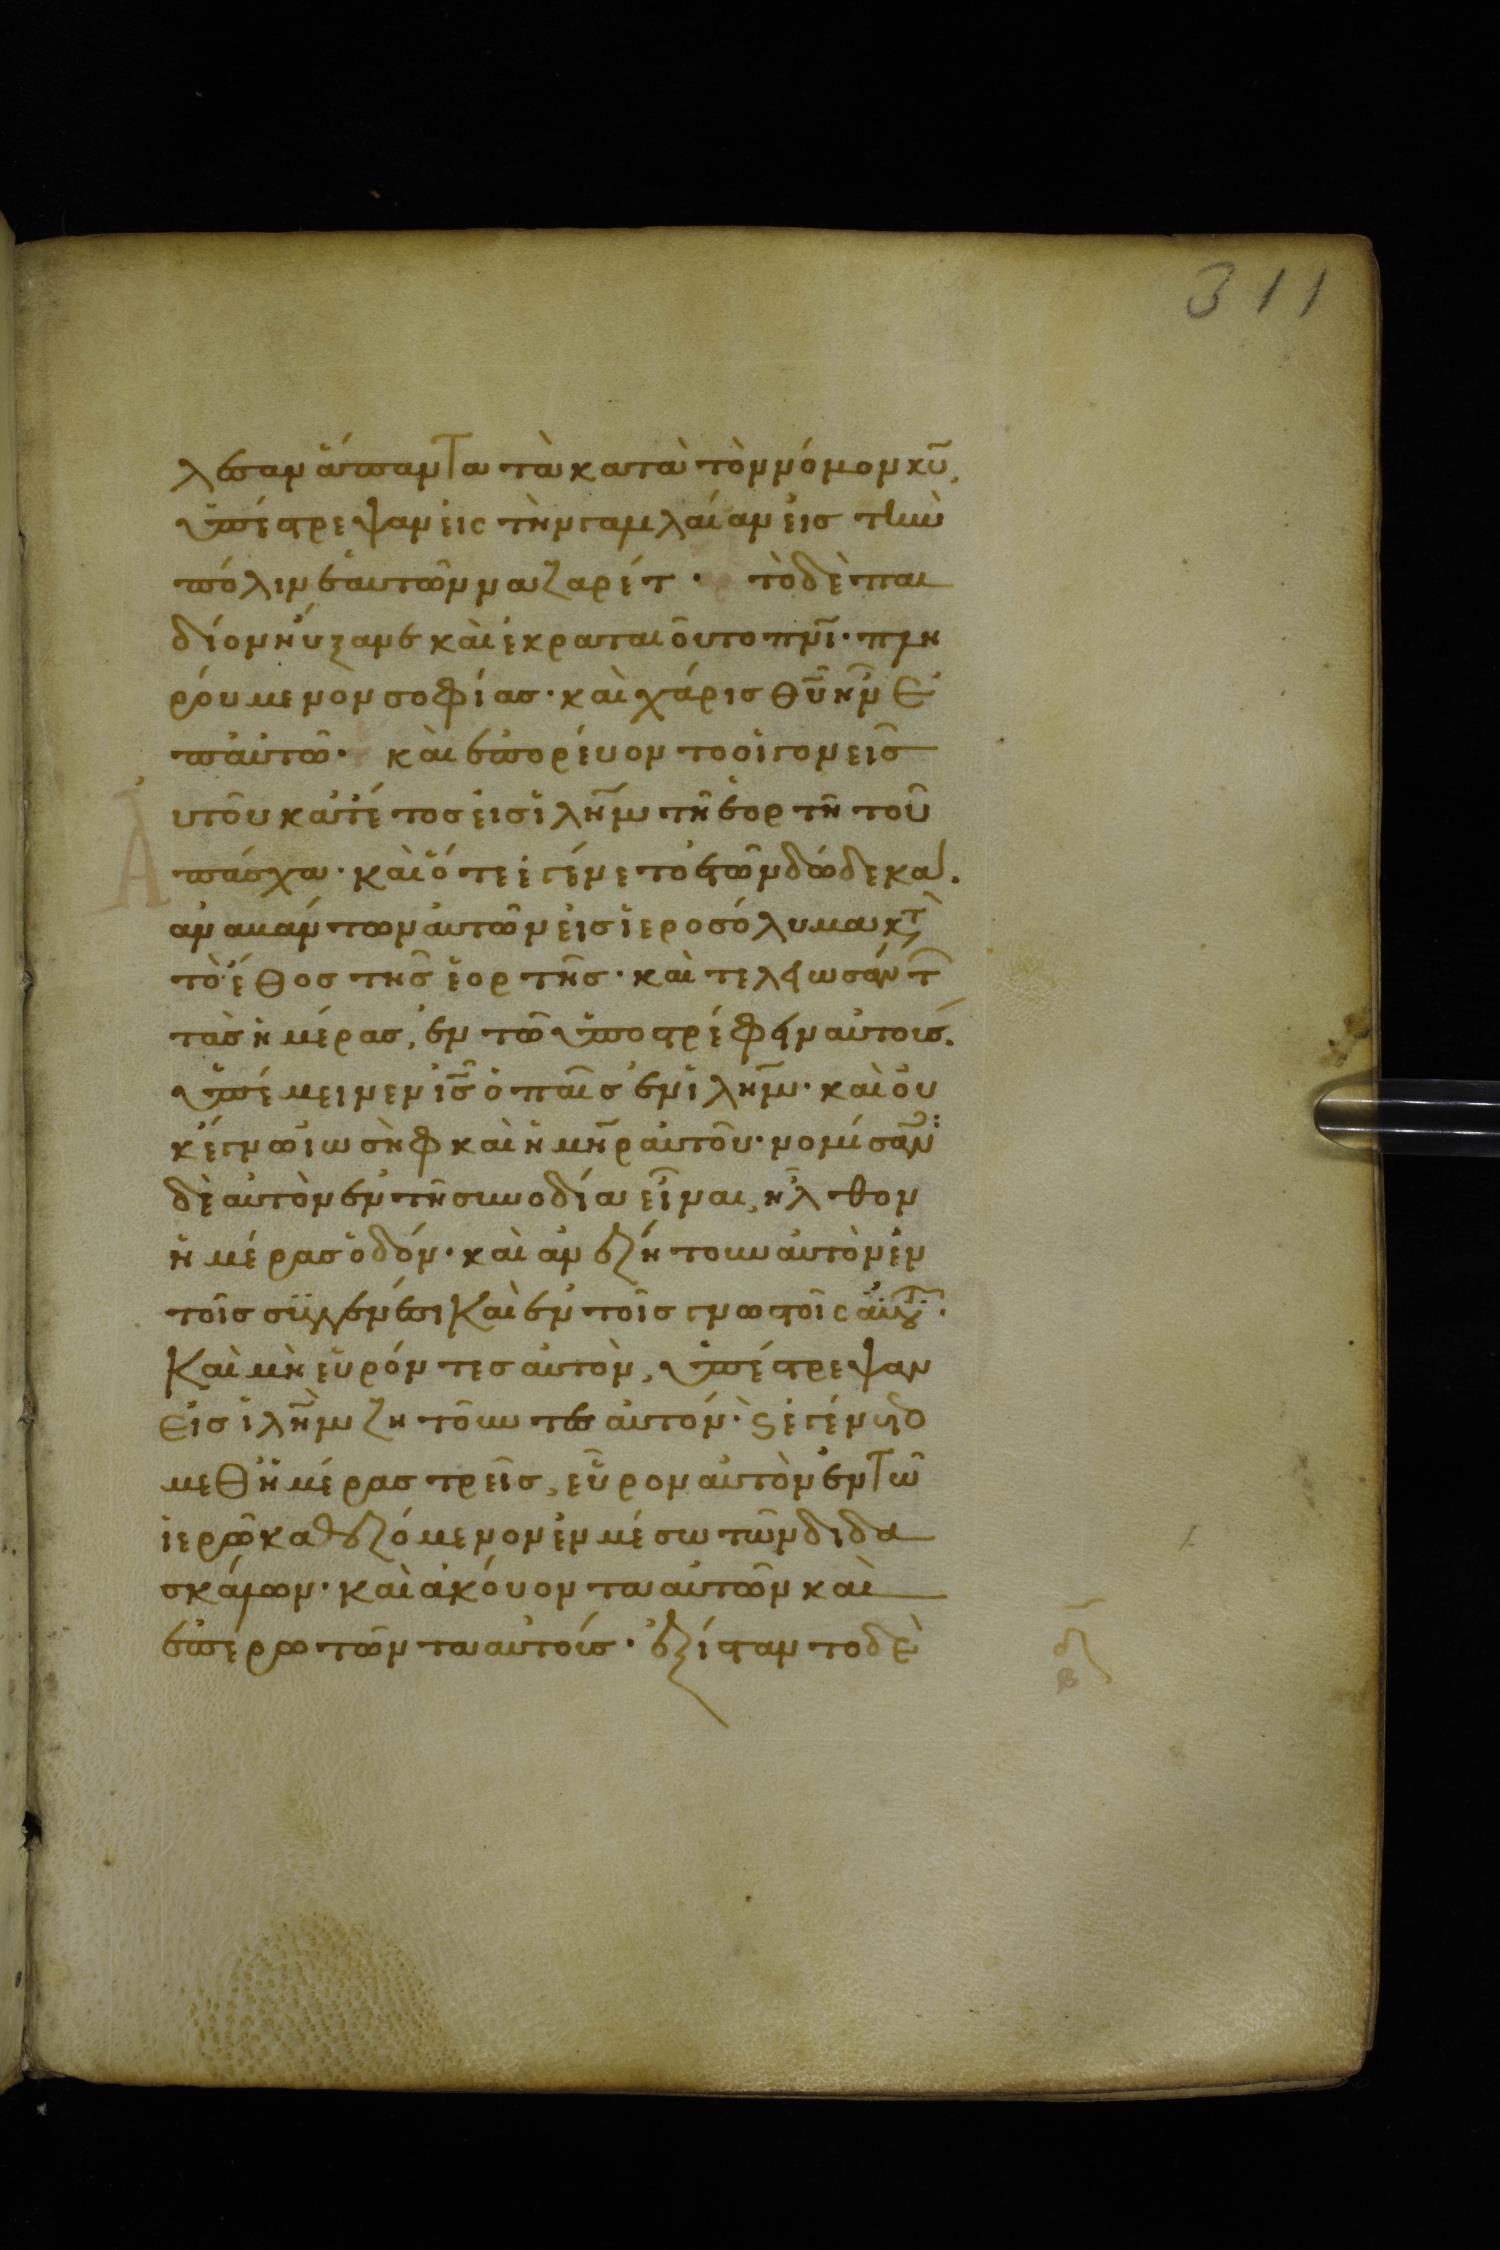 311
λεσαν ἅπαντα τὰ κατὰ τὸν νόμον κ̅υ̅,
ὑπέστρεψαν εἰς τὴν γαλιλαίαν εἰς τὴν
πόλιν ἑαυτῶν ναζαρέτ · τὸ δὲ παι
δίον ηὔξανε καὶ ἐκραταιοῦτο π̅ν̅ι̅ · πλη
ρούμενον σοφίας · καὶ χάρις θ̅υ̅ ἦν ἐ
π αὐτῶ · καὶ ἐπορεύοντο οἱ γονεῖς
αὐτοῦ κατ ἔτος εἰς ἰ̅λ̅η̅μ̅ τῆ ἑορτῆ τοῦ
πάσχα · καὶ ὅτε ἐγένετο ἐτῶν δώδεκα .
ἀναβάντων αὐτῶν εἰς ἱεροσόλυμα κτ
τὸ ἔθος τῆς ἑορτῆς · καὶ τελειωσάντ
τὰς ἡμέρας, ἐν τῶ ὑποστρέφειν αὐτούς.
ὑπέμεινεν ι̅ς̅ ὁ παῖς ἐν ἰ̅λ̅η̅μ̅ · καὶ οὐ
κ ἔγνω ἰωσὴφ καὶ ἡ μ̅η̅ρ̅ αὐτοῦ · νομίσαν
δὲ αὐτὸν ἐν τῆ συνοδία εἶναι, ἦλθον
ἡμέρας ὁδόν · καὶ ἀνεζήτουν αὐτὸν ἐν
τοῖς συγγενέσι καὶ ἐν τοῖς γνωστοῖς αὐτοῦ ·
καὶ μὴ εὑρόντες αὐτὸν, ὑπέστρεψαν
εἰς ἰ̅λ̅η̅μ̅ ζητοῦντες αὐτόν · ϗ ἐγένετο
μεθ ἡμέρας τρεῖς, εὗρον αὐτὸν ἐν τῶ
ἱερῶ καθεζόμενον ἐν μέσω τῶν διδα
σκάλων · καὶ ἀκούοντα αὐτῶν καὶ
ἐπερωτῶντα αὐτούς · ἐξίσταντο δὲ